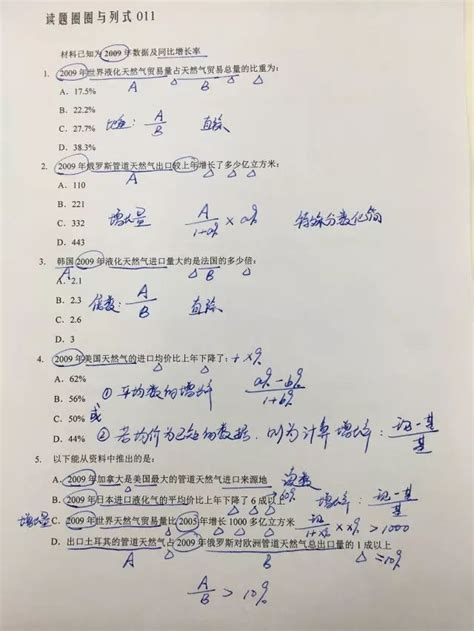 读题圈圈与列式 011
材料已知为 2009 年数据及同比增长率
1. 2009 年世界液化天然气贸易量占天然气贸易总量的比重为:
A B
A. 17.5%
B. 22.2%
C. 27.7% 比重: A/B 直除
D. 38.3%
2. 2009 年俄罗斯管道天然气出口较上年增长了多少亿立方米:
A
A. 110
B. 221
C. 332 增长量 A/(1+a%) × a% 特殊分数化简
D. 443
3. 韩国 2009 年液化天然气进口量大约是法国的多少倍:
A B
A. 2.1
B. 2.3 倍数: A/B 直除
C. 2.6
D. 3
4. 2009 年美国天然气的进口均价比上年下降了: + x%
A. 62% ① 平均数的增长率 (a%-b%)/(1+b%)
B. 56%
C. 50% 或
D. 44% ② 若均价为已知的数据, 则为计算增长率: (现-基)/基
5. 以下能从资料中推出的是:
A. 2009 年加拿大是美国最大的管道天然气进口来源地 读数
B. 2009 年日本进口液化气的平均价比上年下降了 6 成以上 60% 增长率: (现-基)/基
增长量 C. 2009 年世界天然气贸易量比 2005 年增长 1000 多亿立方米 现/(1+x%) × x% > 1000
D. 出口土耳其的管道天然气占 2009 年俄罗斯对欧洲管道天然气总出口量的 1 成以上 =10%
A B
A/B > 10%